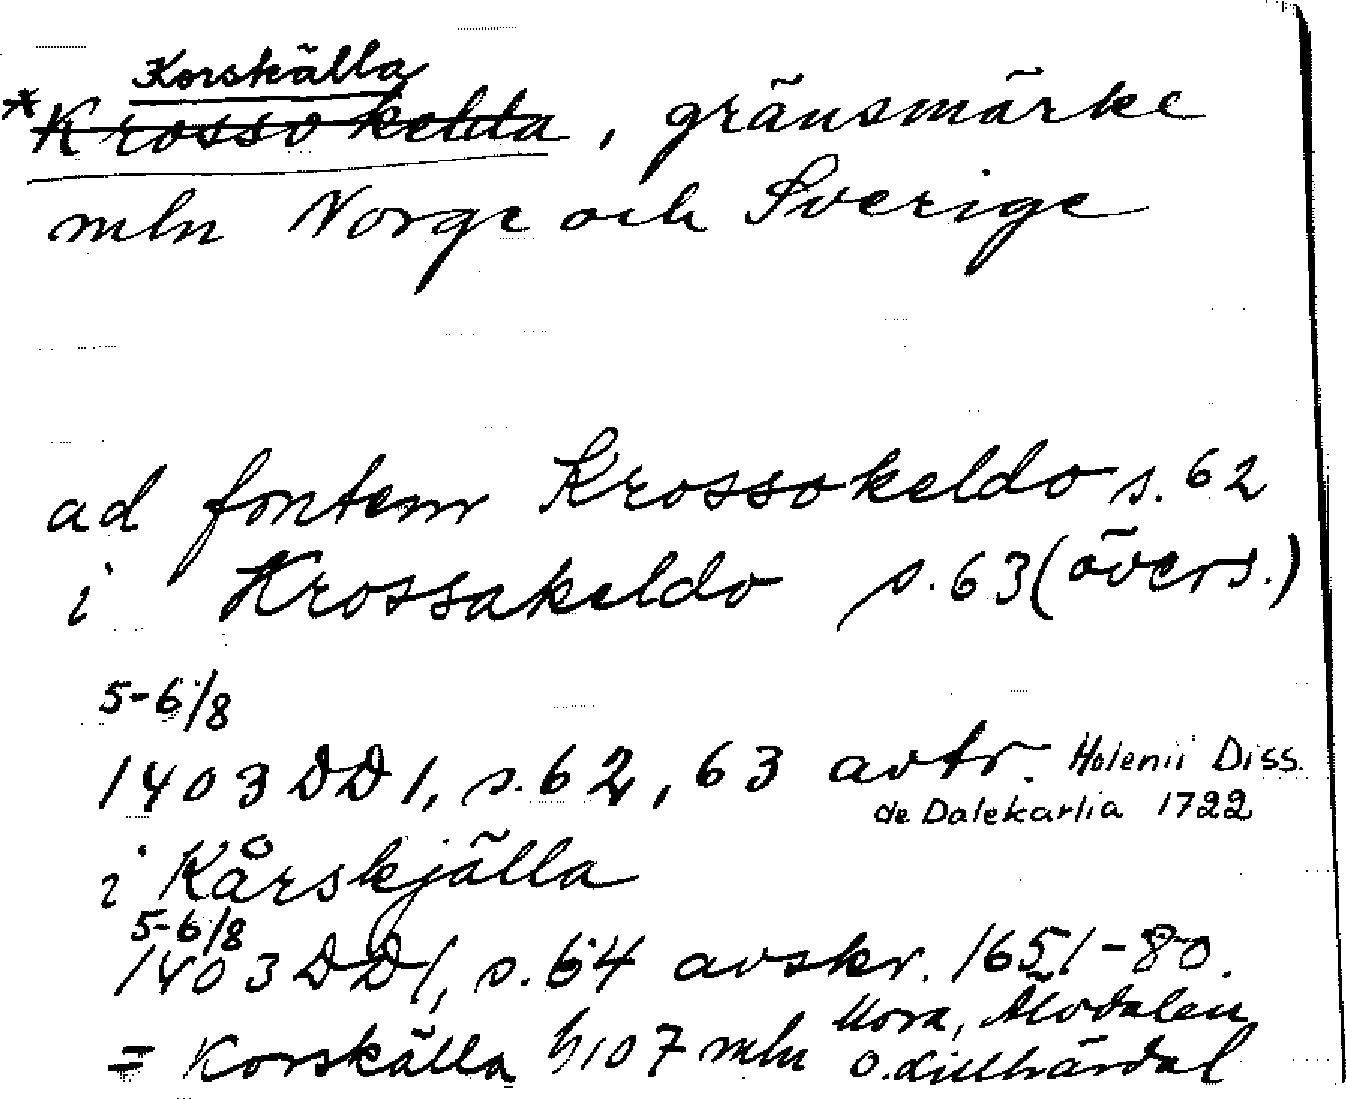 Korskälla
*Krossokelda, gränsmärke
mln Norge och Sverige
ad fontem Krossokeldo s. 62
i Krossakeldo s. 63 (övers.)
5-6/8
1403 DD 1, s. 62, 63 avtr. Holenii Diss.
de Dalekarlia 1722
i Kårskjälla
5-6/8
1403 DD 1, s. 64 avskr. 1651-80.
= Korskälla h107 mln Mora, Älvdalen
o. Lillhärdal